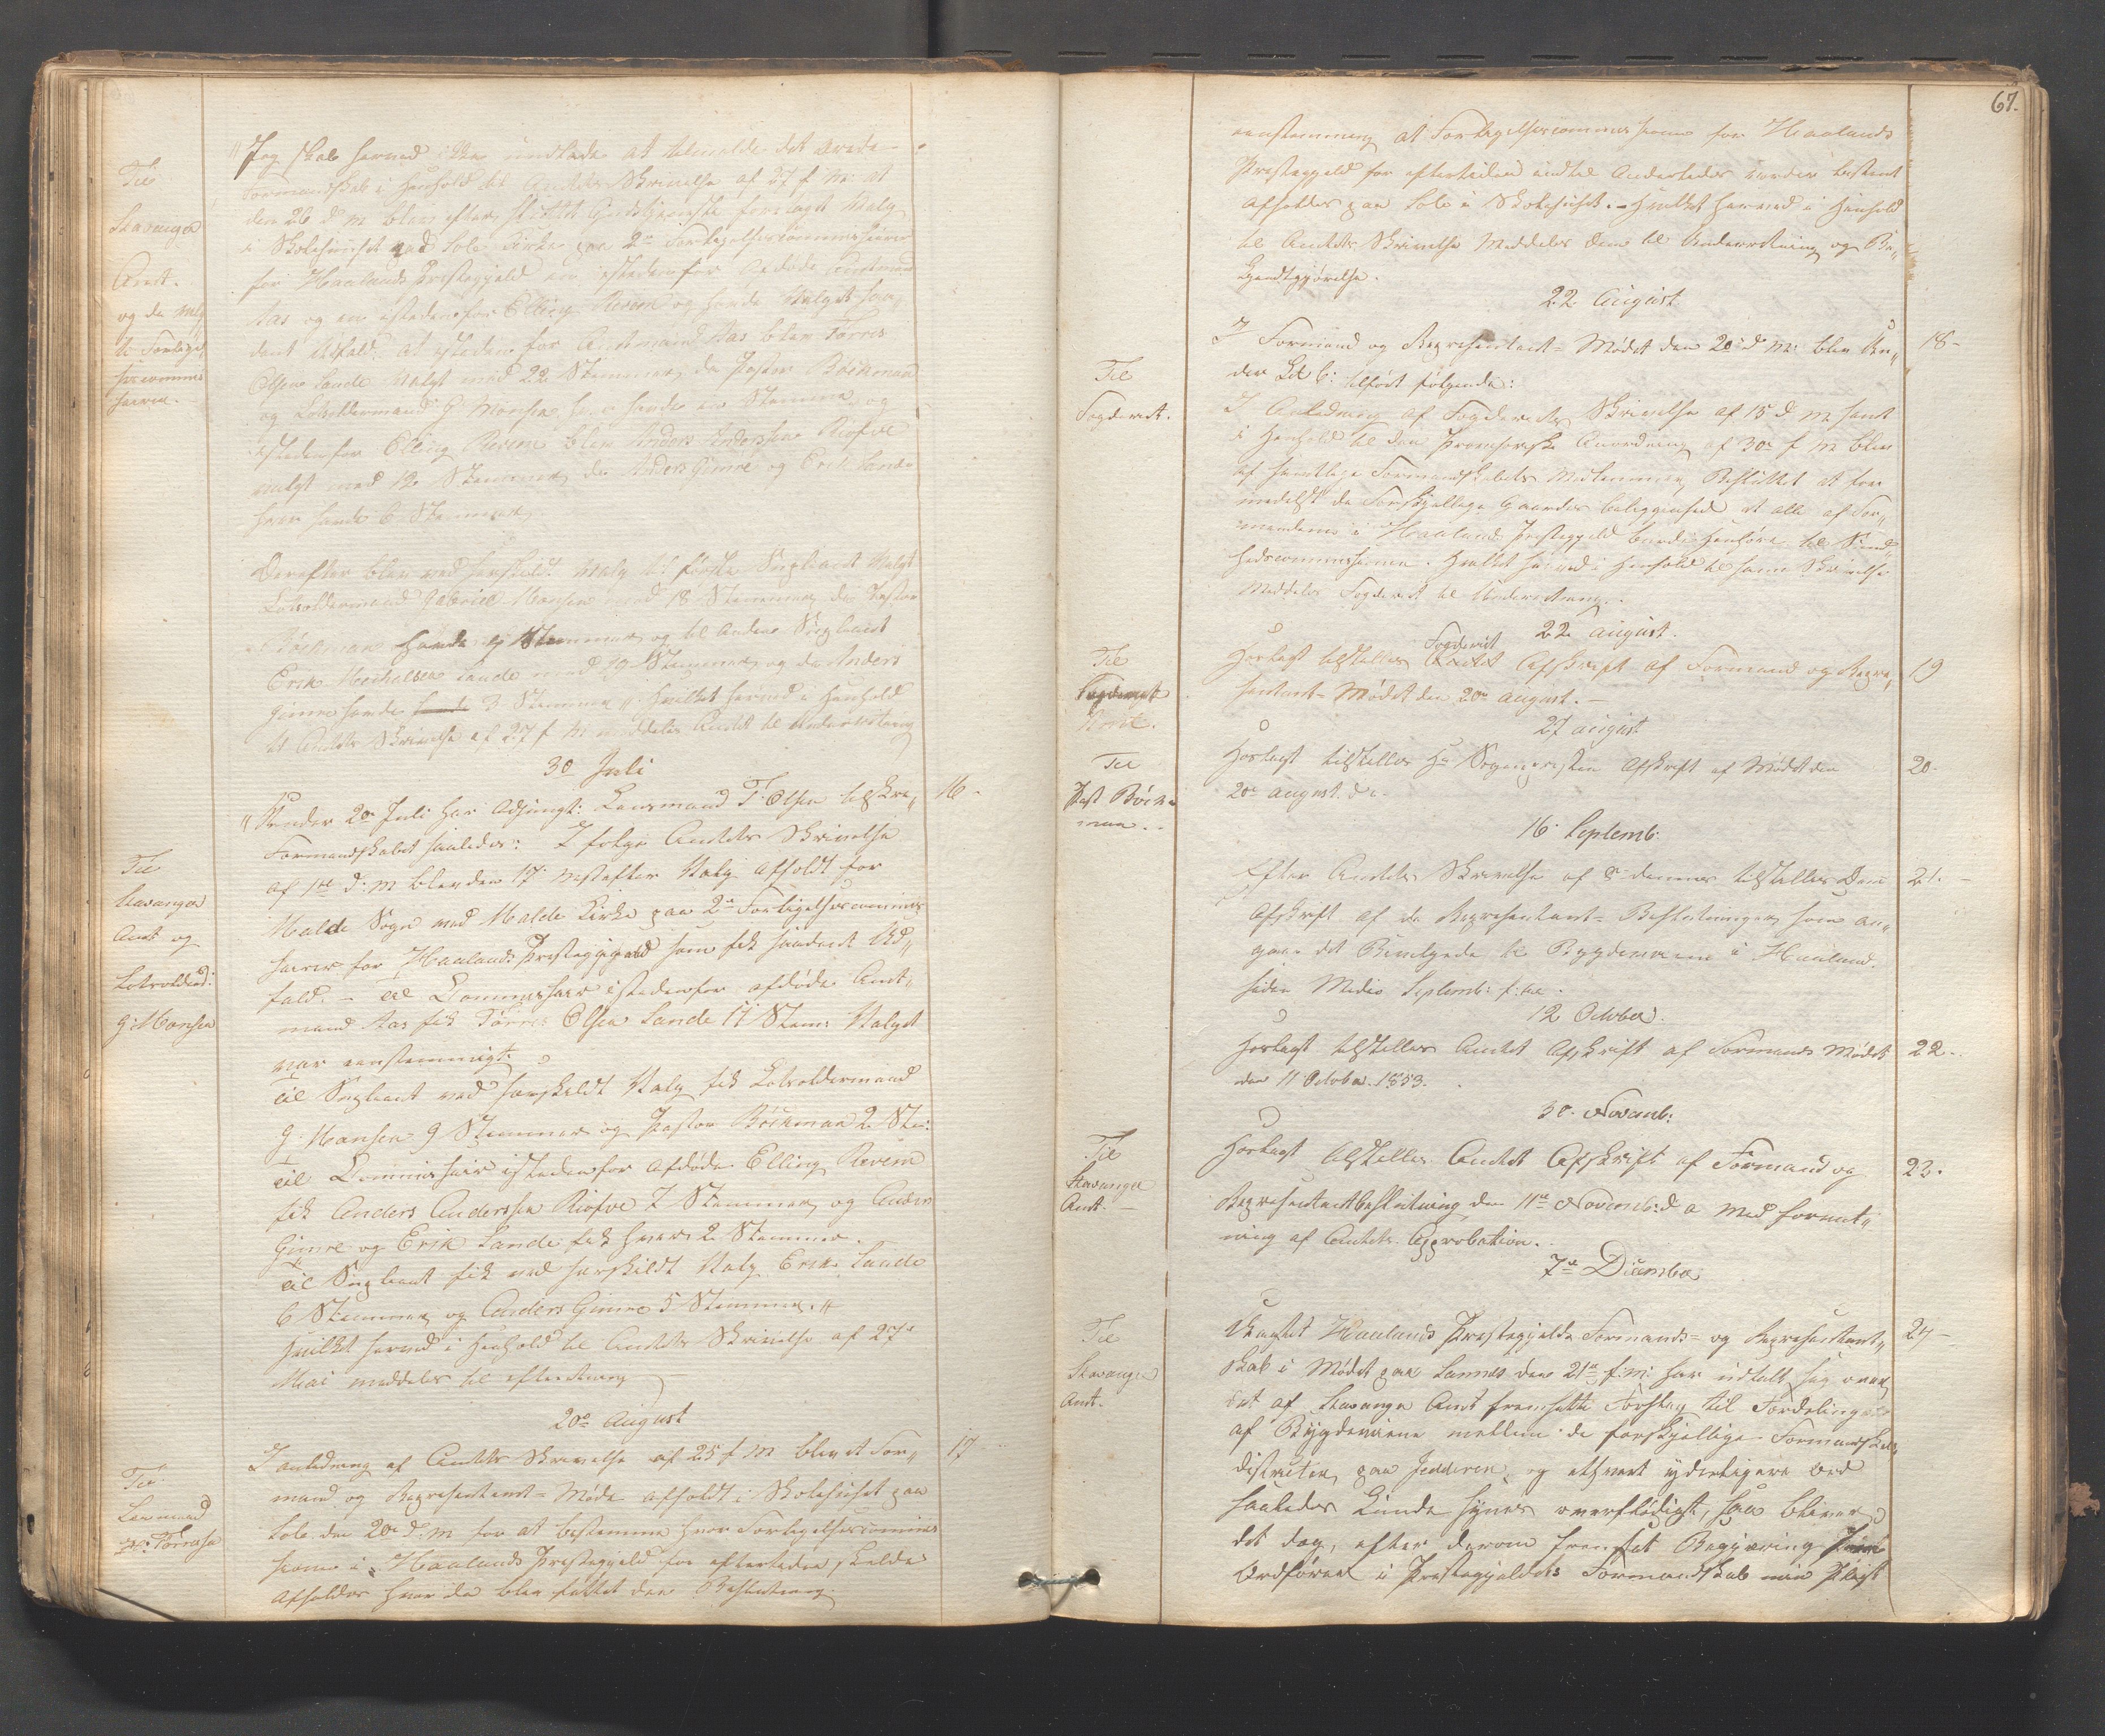 Til
Stavanger
Amt.
og de valg
te Forligel
sescommis
sairer.
"Jeg skal herved ikke undlade at tilmelde det ærede
Formandskab i Henhold til Amtets Skrivelse af 27 f. M. at
den 26 d. M. blev efter sluttet Gudstjeneste foretaget Valg
i Skolehuset ved Sole Kirke paa 2de Forligelsescommissairer
for Haalands Præstegjeld en istedenfor afdøde Amtmand
Aas og en istedenfor Elling Reveem og havde Valget saa„
dant Udfald: at istedenfor Amtmand Aas blev Tørres
Olsen Sande valgt med 22 Stemmer, da Pastor Böckman
og Lotsoldermand G. Monsen havde en Stemme og
istedenfor Elling Reveem blev Anders Anderssen Risfoe
valgt med 12 Stemmer, da Anders Gimre og Erik Sande
hver havde 6 Stemmer.
Derefter blev ved særskildt Valg til første Supleant valgt
Lotsoldermand Gabriel Monsen med 18 Stemmer da Pastor
Böckman havde Stemmer og til anden Supleant
Erik Michelsen Sande med 19 Stemmer og da Anders
Gimre havde 3 Stemmer". Hvilket herved i Henhold
til Amtets Skrivelse af 27 f. M. meddeles Amtet til Underretning
30 Juli
Til
Stavanger
Amt og
Lotsolderd:
G: Monsen
"Under 20de Juli har Adjungt: Lensmand T. Olsen tilskre„ 16 -
Formandskabet saaledes: I følge Amtets Skrivelse
af 1ste d: M blev den 17 næstefter Valg afholdt for
Malde Sogn ved Malde Kirke paa 2de Forligelsescommis
sairer for Haalands Præstegjeld som fik saadant Ud„
fald. - Til Commissair istedenfor afdøde Amt„
mand Aas fik Tørres Olsen Sande 11 Stem: Valget
var eenstemmigt.
Til Supleant ved særskildt Valg fik Lotsoldermand
G. Monsen 9 Stemmer og Pastor Böckman 2 Ste:
Til Commissair istedenfor afdøde Elling Reveem
fik Anders Anderssen Risfoe 7 Stemmer og Anders
Gimre og Erik Sande fik hver 2 Stemmer.
Til Supleant fik ved særskildt Valg Erik Sande
6 Stemmer og Anders Gimre 5 Stemmer."
Hvilket herved i Henhold til Amtets Skrivelse af 27de
Mai meddeles til efterretning
20de August
Til
Lensmand
Torresen
I anledning af Amtets Skrivelse af 25 f M blev et For„ 17
mand og Representant-Møde afholdt i Skolehuset paa
Sole den 20de d. M for at bestemme hvor Forligelsescommis
sionen i Haalands Præstegjeld for eftertiden skulde
afholdes hvor da blev fattet den Beslutning
67.
eenstemmig at Forligelsescommissionen for Haalands
Præstegjeld for eftertiden indtil Anderledes vorder bestemt
afholdes paa Sole i Skolehuset. - Hvilket herved i Henhold
til Amtets Skrivelse Meddeles Dem til Underretning og Be„
kjendtgjørelse.
22 August
Til
Fogderiet.
I Formand og Representant-Mødet den 20de d M. blev Un„ 18 -
der Lit b: tilført følgende:
I Anledning af Fogderiets Skrivelse af 15 d M. samt
i Henhold til den Provisoriske Anordning af 30te f M blev
af samtlige Formandskabets Medlemmer Besluttet at for
medelst de Forskjellige Gaardes beliggenhed at alle af For„
mændene i Haaland Præstegjeld burde Henhøre til Sund„
hedscommissionen. Hvilket herved i Henhold til samme Skrivelse
Meddeles Fogderiet til Underretning.
22 August.
Til
Fogderiet
Amtet.
Fogderiet
Hoslagt tilstilles Amtet Afskrift af Formand og Repre„ 19
sentant-Mødet den 20de August. -
27 august
Til
Past Böck-
man.
Hoslagt tilstilles Hr Sognepresten Afskrift af Mødet den 20.
20de August d. a.
16 Septemb:
Efter Amtets Skrivelse af 8de dennes tilstilles Dem 21. -
Afskrift af de Representant-Beslutninger, som an„
gaae det Bevilgede til Bygdeveiene i Haaland.
siden Medio Septemb: f:
12 October.
Hoslagt tilstilles Amtet Afskrift af Formands Mødet 22 -
den 11 October 1853.
30. Novemb:
Til
Stavanger
Amt. -
Hoslagt tilstilles Amtet Afskrift af Formand og 23.
Representantbeslutning den 11te Novemb: d a med forvent„
ning af Amtets Approbation.
7de Decembr
Til
Stavanger
Amt.
Uagtet Haalands Præstegjelds Formands- og Representant„ 24 -
skab i Mødet paa Sannes den 21de f. m. har udtalt sig over
det af Stavanger Amt fremsatte Forslag til Fordelingen
af Bygdeveiene mellem de forskjellige Formandskabs
distrikter paa Jedderen, og ethvert yderligere Ord
saaledes kunde synes overflødigt, saa bliver
det dog, efter derom fremsat Begjæring
Ordfører i Præstegjeldets Formandskab min Pligt